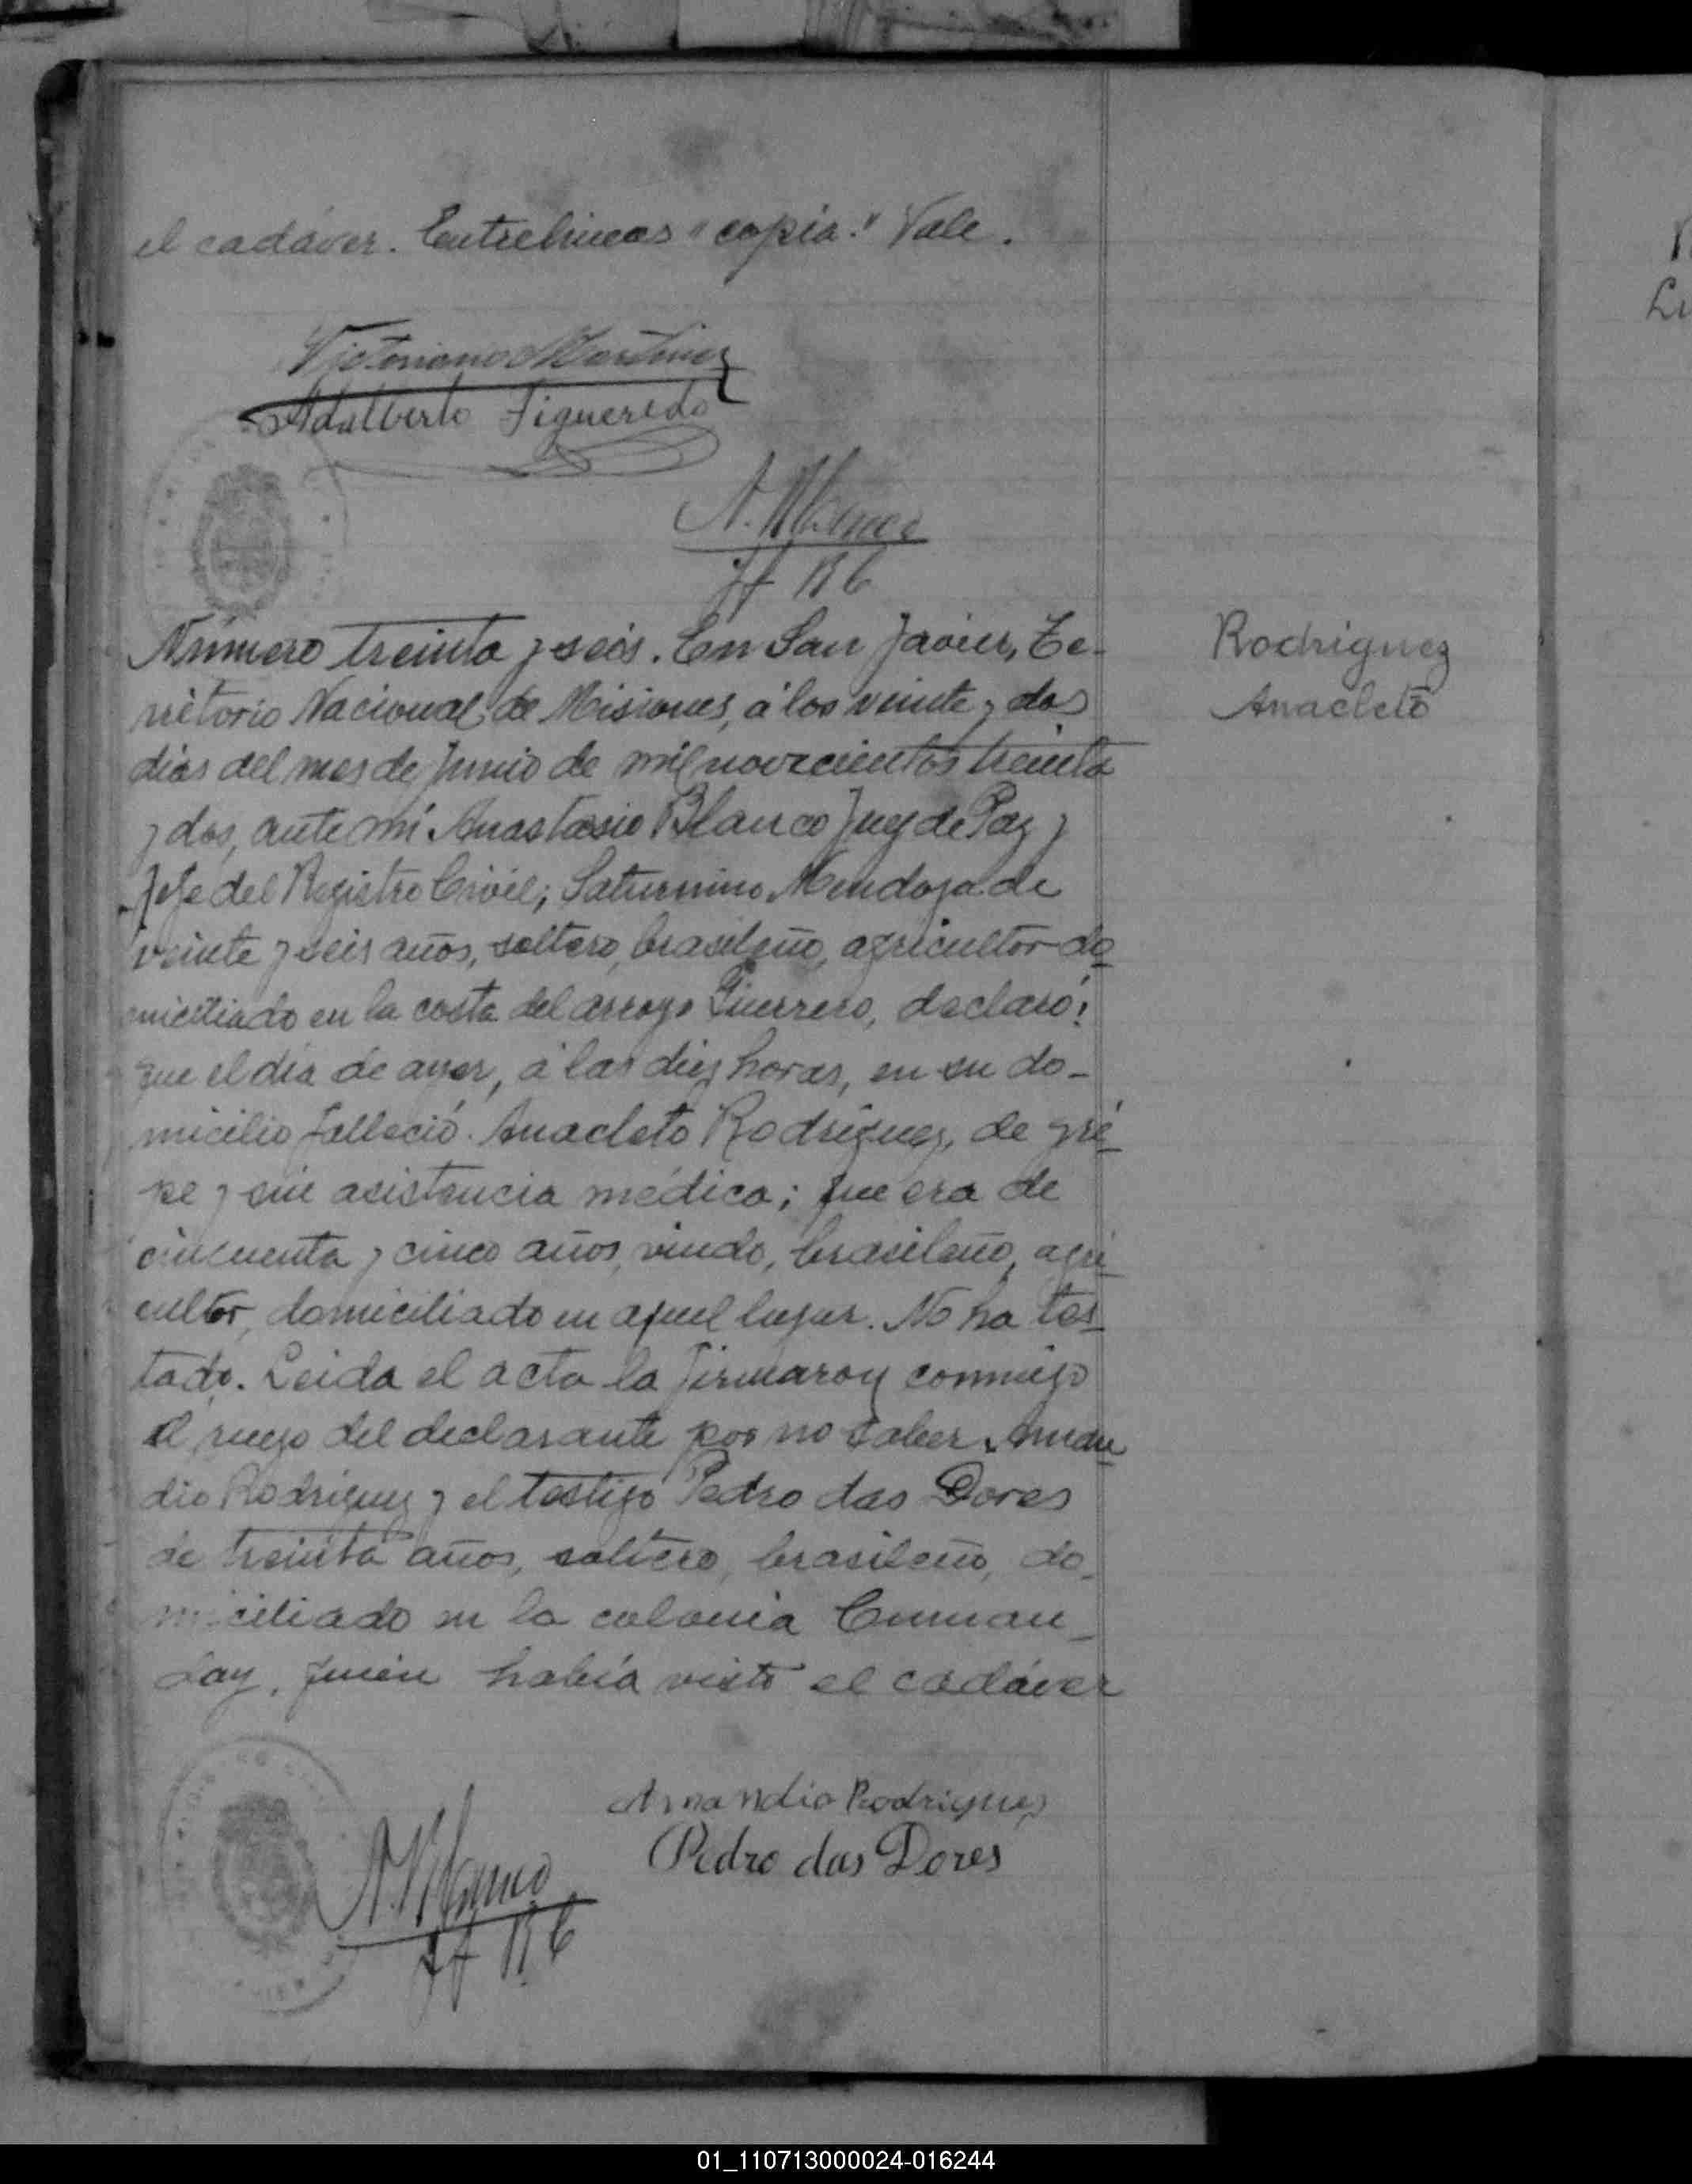 el cadáver. Entrelineas "copia." Vale.
Victoriano Martinez
Adalberto Figueredo
A. Blanco
Jf RC
Número treinta y seis. En San Javier, Te-
rritorio Nacional de Misiones, á los veinte y dos
dias del mes de Junio de mil novecientos treinta
y dos, ante mí Anastasio Blanco Juez de Paz y
Jefe del Registro Civil; Saturnino Mendoza de
veinte y seis años, soltero, brasileño, agricultor do-
miciliado en la costa del arroyo Guerrero, declaró:
que el día de ayer, á las diez horas, en su do-
micilio falleció Anacleto Rodriguez, de gri-
pe y sin asistencia médica; que era de
cincuenta y cinco años, viudo, brasileño, agri-
cultor, domiciliado en aquel lugar. No ha tes-
tado. Leida el acta la firmaron conmigo
á ruego del declarante por no saber Aman-
dio Rodriguez y el testigo Pedro das Dores
de treinta años, soltero, brasileño, do-
miciliado en la colonia Cuman-
day, quien había visto el cadáver
Rodriguez
Anacleto
Amandio Rodrigues
Pedro das Dores
A. Blanco
Jf RC
01_110713000024-016244